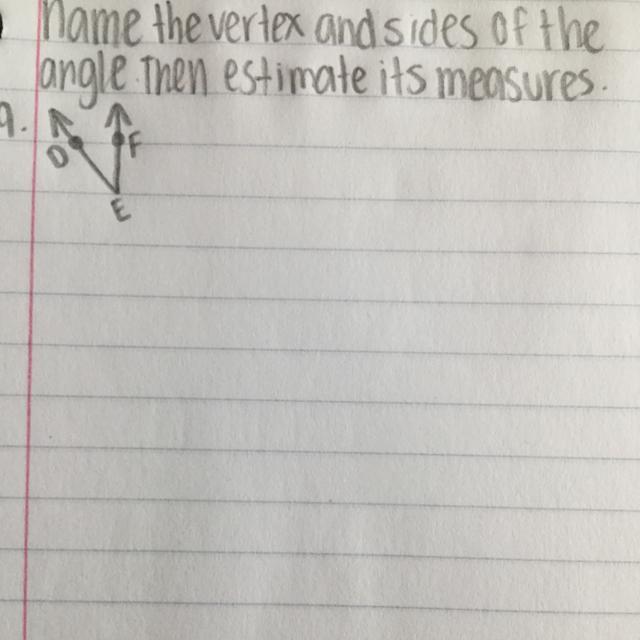 Name the vertex and sides of the
angle. Then estimate its measures.
9.
D F
E